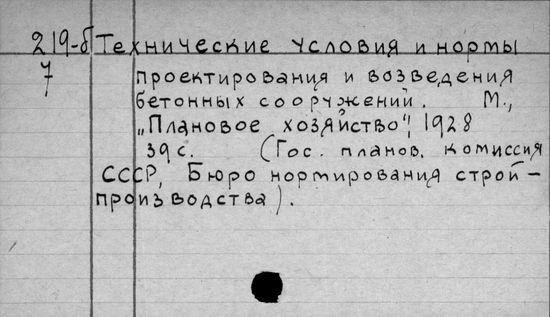 219-б Технические условия и нормы
7 проектирования и возведения
бетонных сооружений. М.,
„Плановое хозяйство", 1928
39 с. (Гос. планов. комиссия
СССР, Бюро нормирования строй-
производства).